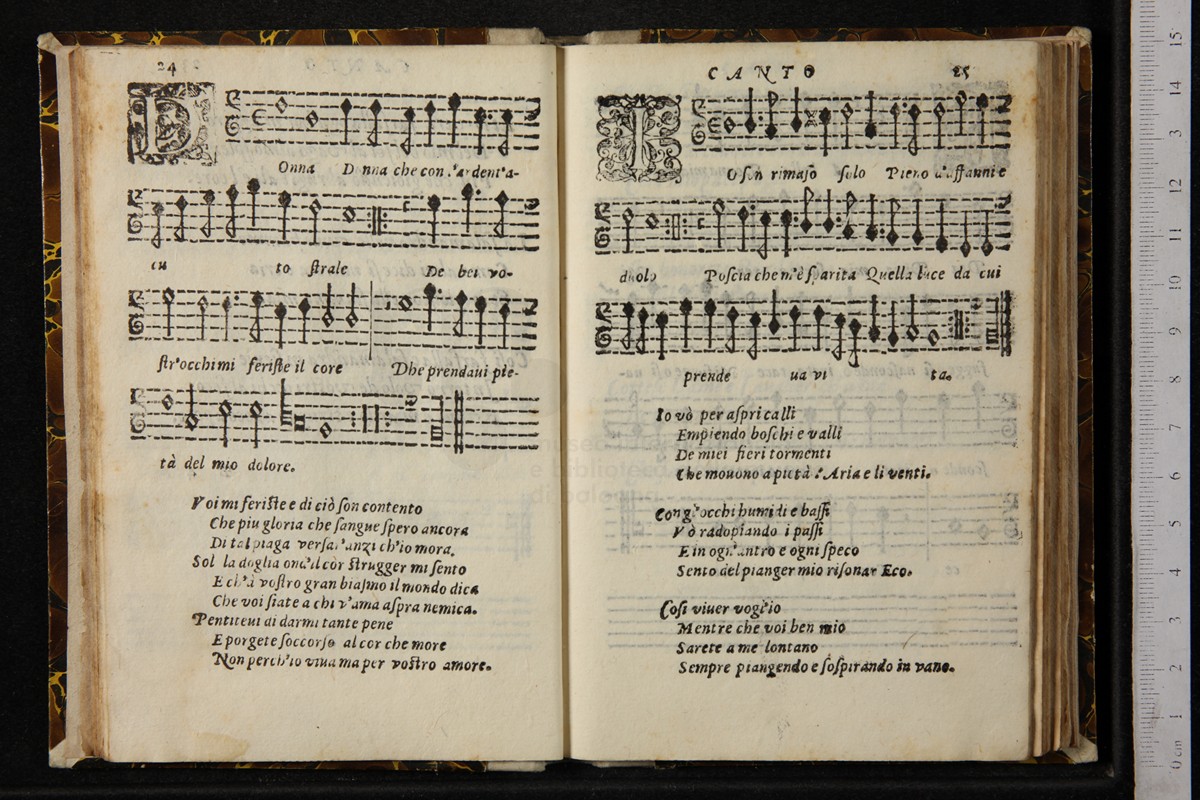 24
D
Onna D nna che con l'ardent'a-
cu to ſtrale De bei vo-
ſtr'occhi mi feriſte il core Dhe prendaui pie-
tà del mio dolore.
Voi mi feriſte e di ciò ſon contento
Che piu gloria che ſangue ſpero ancora
Di tal piaga verſar anzi ch'io mora.
Sol la doglia ond'il cor ſtrugger mi ſento
E ch'à voſtro gran biaſmo il mondo dica
Che voi ſiate a chi v'ama aſpra nemica.
Pentiteui di darmi tante pene
E porgete ſoccorſo al cor che more
Non perch'io viua ma per voſtro amore.
CANTO
25
I
O ſon rimaſo ſolo Pieno d'affanni e
duolo Poſcia che m'è ſparita Quella luce da cui
prende ua vi ta.
Io vò per aſpri calli
Empiendo boſchi e valli
De miei fieri tormenti
Che mouono a pietà l'Aria e li venti.
Con gl'occhi humidi e baſſi
Vò radopiando i paſſi
E in ogn'antro e ogni ſpeco
Sento del pianger mio riſonar Eco.
Coſi viuer vogl'io
Mentre che voi ben mio
Sarete a me lontano
Sempre piangendo e ſoſpirando in vano.
museo
e biblioteca
di bologna
0 cm 1 2 3 4 5 6 7 8 9 10 11 12 13 14 15